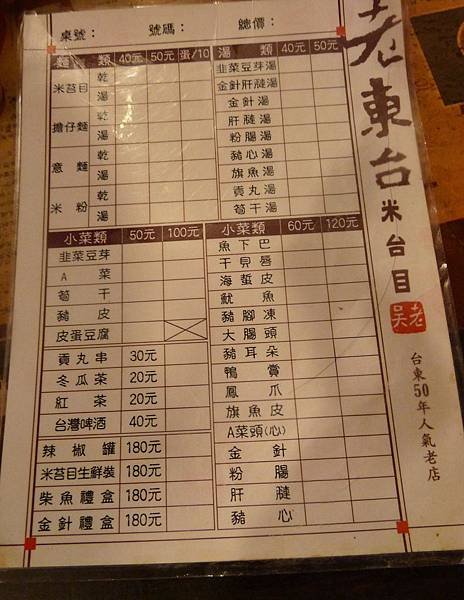 桌號： 號碼： 總價：
麵類 40元 50元 蛋/10
米苔目 乾
湯
擔仔麵 乾
湯
意麵 乾
湯
米粉 乾
湯
湯類 40元 50元
韭菜豆芽湯
金針肝膶湯
金針湯
肝膶湯
粉腸湯
豬心湯
旗魚湯
貢丸湯
筍干湯
小菜類 50元 100元
韭菜豆芽
A菜
筍干
豬皮
皮蛋豆腐
貢丸串 30元
冬瓜茶 20元
紅茶 20元
台灣啤酒 40元
辣椒罐 180元
米苔目生鮮裝 180元
柴魚禮盒 180元
金針禮盒 180元
小菜類 60元 120元
魚下巴
干貝唇
海蜇皮
魷魚
豬腳凍
大腸頭
豬耳朵
鴨賞
鳳爪
旗魚皮
A菜頭(心)
金針
粉腸
肝膶
豬心
老東台米台目
老吳
台東50年人氣老店